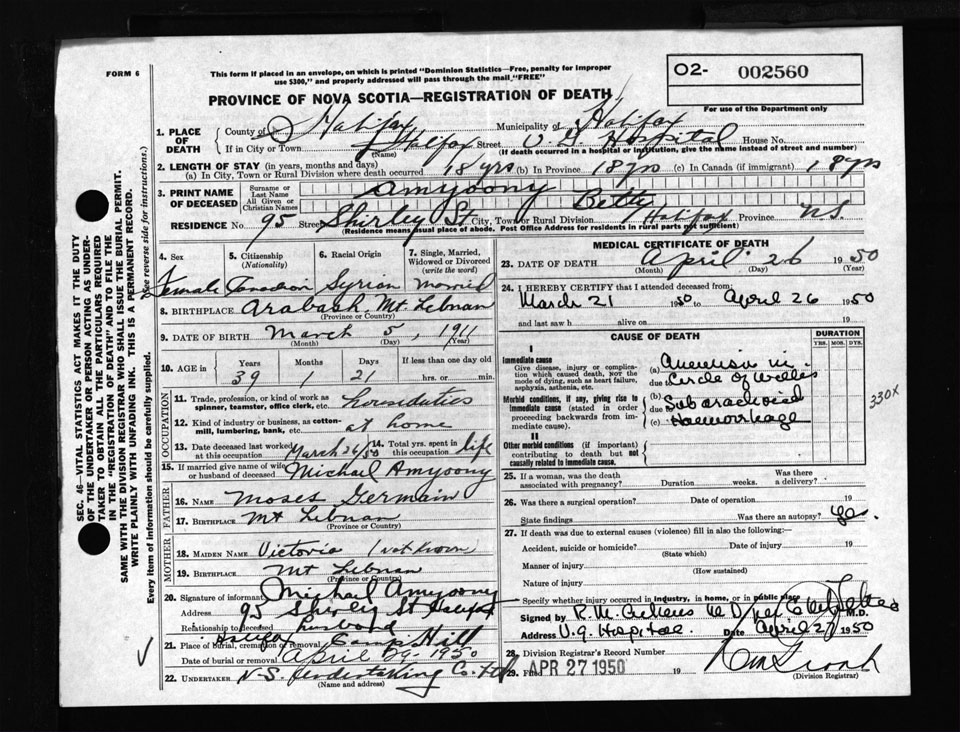 FORM 6
This form if placed in an envelope, on which is printed "Dominion Statistics—Free, penalty for improper
use $300," and properly addressed will pass through the mail "FREE"
O2- 002560
For use of the Department only
PROVINCE OF NOVA SCOTIA—REGISTRATION OF DEATH
1. PLACE OF DEATH
County of Halifax Municipality of Halifax
If in City or Town Halifax Street V. G. Hospital House No.
(Name) (If death occurred in a hospital or institution, give the name instead of street and number)
2. LENGTH OF STAY (in years, months and days)
(a) In City, Town or Rural Division where death occurred 18 yrs (b) In Province 18 yrs (c) In Canada (if immigrant) 18 yrs
3. PRINT NAME OF DECEASED
Surname or Last Name Amyoony
All Given or Christian Names Betty
RESIDENCE No. 95 Street Shirley St City, Town or Rural Division Halifax Province N.S.
(Residence means usual place of abode. Post Office Address for residents in rural parts not sufficient)
4. Sex 5. Citizenship (Nationality) 6. Racial Origin 7. Single, Married, Widowed or Divorced (write the word)
Female Canadian Syrian Married
8. BIRTHPLACE Arabash, Mt. Lebnan
(Province or Country)
9. DATE OF BIRTH March 5, 1911
(Month) (Day) (Year)
10. AGE Years Months Days If less than one day old
39 1 21 hrs. or min.
OCCUPATION
11. Trade, profession, or kind of work as spinner, teamster, office clerk, etc. houseduties
12. Kind of industry or business, as cotton-mill, lumbering, bank, etc. at home
13. Date deceased last worked at this occupation March 26/50 14. Total yrs. spent in this occupation life
15. If married give name of wife or husband of deceased Michael Amyoony
FATHER
16. NAME Moses Germain
17. BIRTHPLACE Mt Lebnan
(Province or Country)
MOTHER
18. MAIDEN NAME Victoria (not known
19. BIRTHPLACE Mt Lebnan
(Province or Country)
20. Signature of informant Michael Amyoony
Address 95 Shirley St Halifax
Relationship to deceased husband
21. Place of burial, cremation or removal Halifax Camp Hill
Date of burial or removal April 29, 1950
22. UNDERTAKER N-S. Undertaking Co. Ltd
(Name and address)
MEDICAL CERTIFICATE OF DEATH
23. DATE OF DEATH April 26 1950
(Month) (Day) (Year)
24. I HEREBY CERTIFY that I attended deceased from:
March 21 1950 to April 26 1950
and last saw h alive on 19
CAUSE OF DEATH DURATION
YRS. MOS. DYS.
I
Immediate cause
Give disease, injury or complication which caused death, NOT the mode of dying, such as heart failure, asphyxia, asthenia, etc.
(a) Aneurism in
due to Circle of Willis
Morbid conditions, if any, giving rise to immediate cause (stated in order proceeding backwards from immediate cause).
(b) Subarachnoid
due to
(c) Haemorrhage
330X
II
Other morbid conditions (if important) contributing to death but not causally related to immediate cause.
25. If a woman, was the death associated with pregnancy? Duration weeks. Was there a delivery?
26. Was there a surgical operation? Date of operation 19
State findings Was there an autopsy? Yes.
27. If death was due to external causes (violence) fill in also the following:—
Accident, suicide or homicide? Date of injury 19
(State which)
Manner of injury
(How sustained)
Nature of injury
Specify whether injury occurred in industry, in home, or in public place
Signed by R. M. M.D.
Address V.G. Hospital. Date April 27 1950
28. Division Registrar's Record Number
29. APR 27 1950 19
(Division Registrar)
SEC. 46—VITAL STATISTICS ACT MAKES IT THE DUTY
OF THE UNDERTAKER OR PERSON ACTING AS UNDER-
TAKER TO OBTAIN ALL THE PARTICULARS REQUIRED
IN THE "REGISTRATION OF DEATH" AND TO FILE THE
SAME WITH THE DIVISION REGISTRAR WHO SHALL ISSUE THE BURIAL PERMIT.
WRITE PLAINLY WITH UNFADING INK. THIS IS A PERMANENT RECORD.
Every item of information should be carefully supplied. (See reverse side for instructions.)